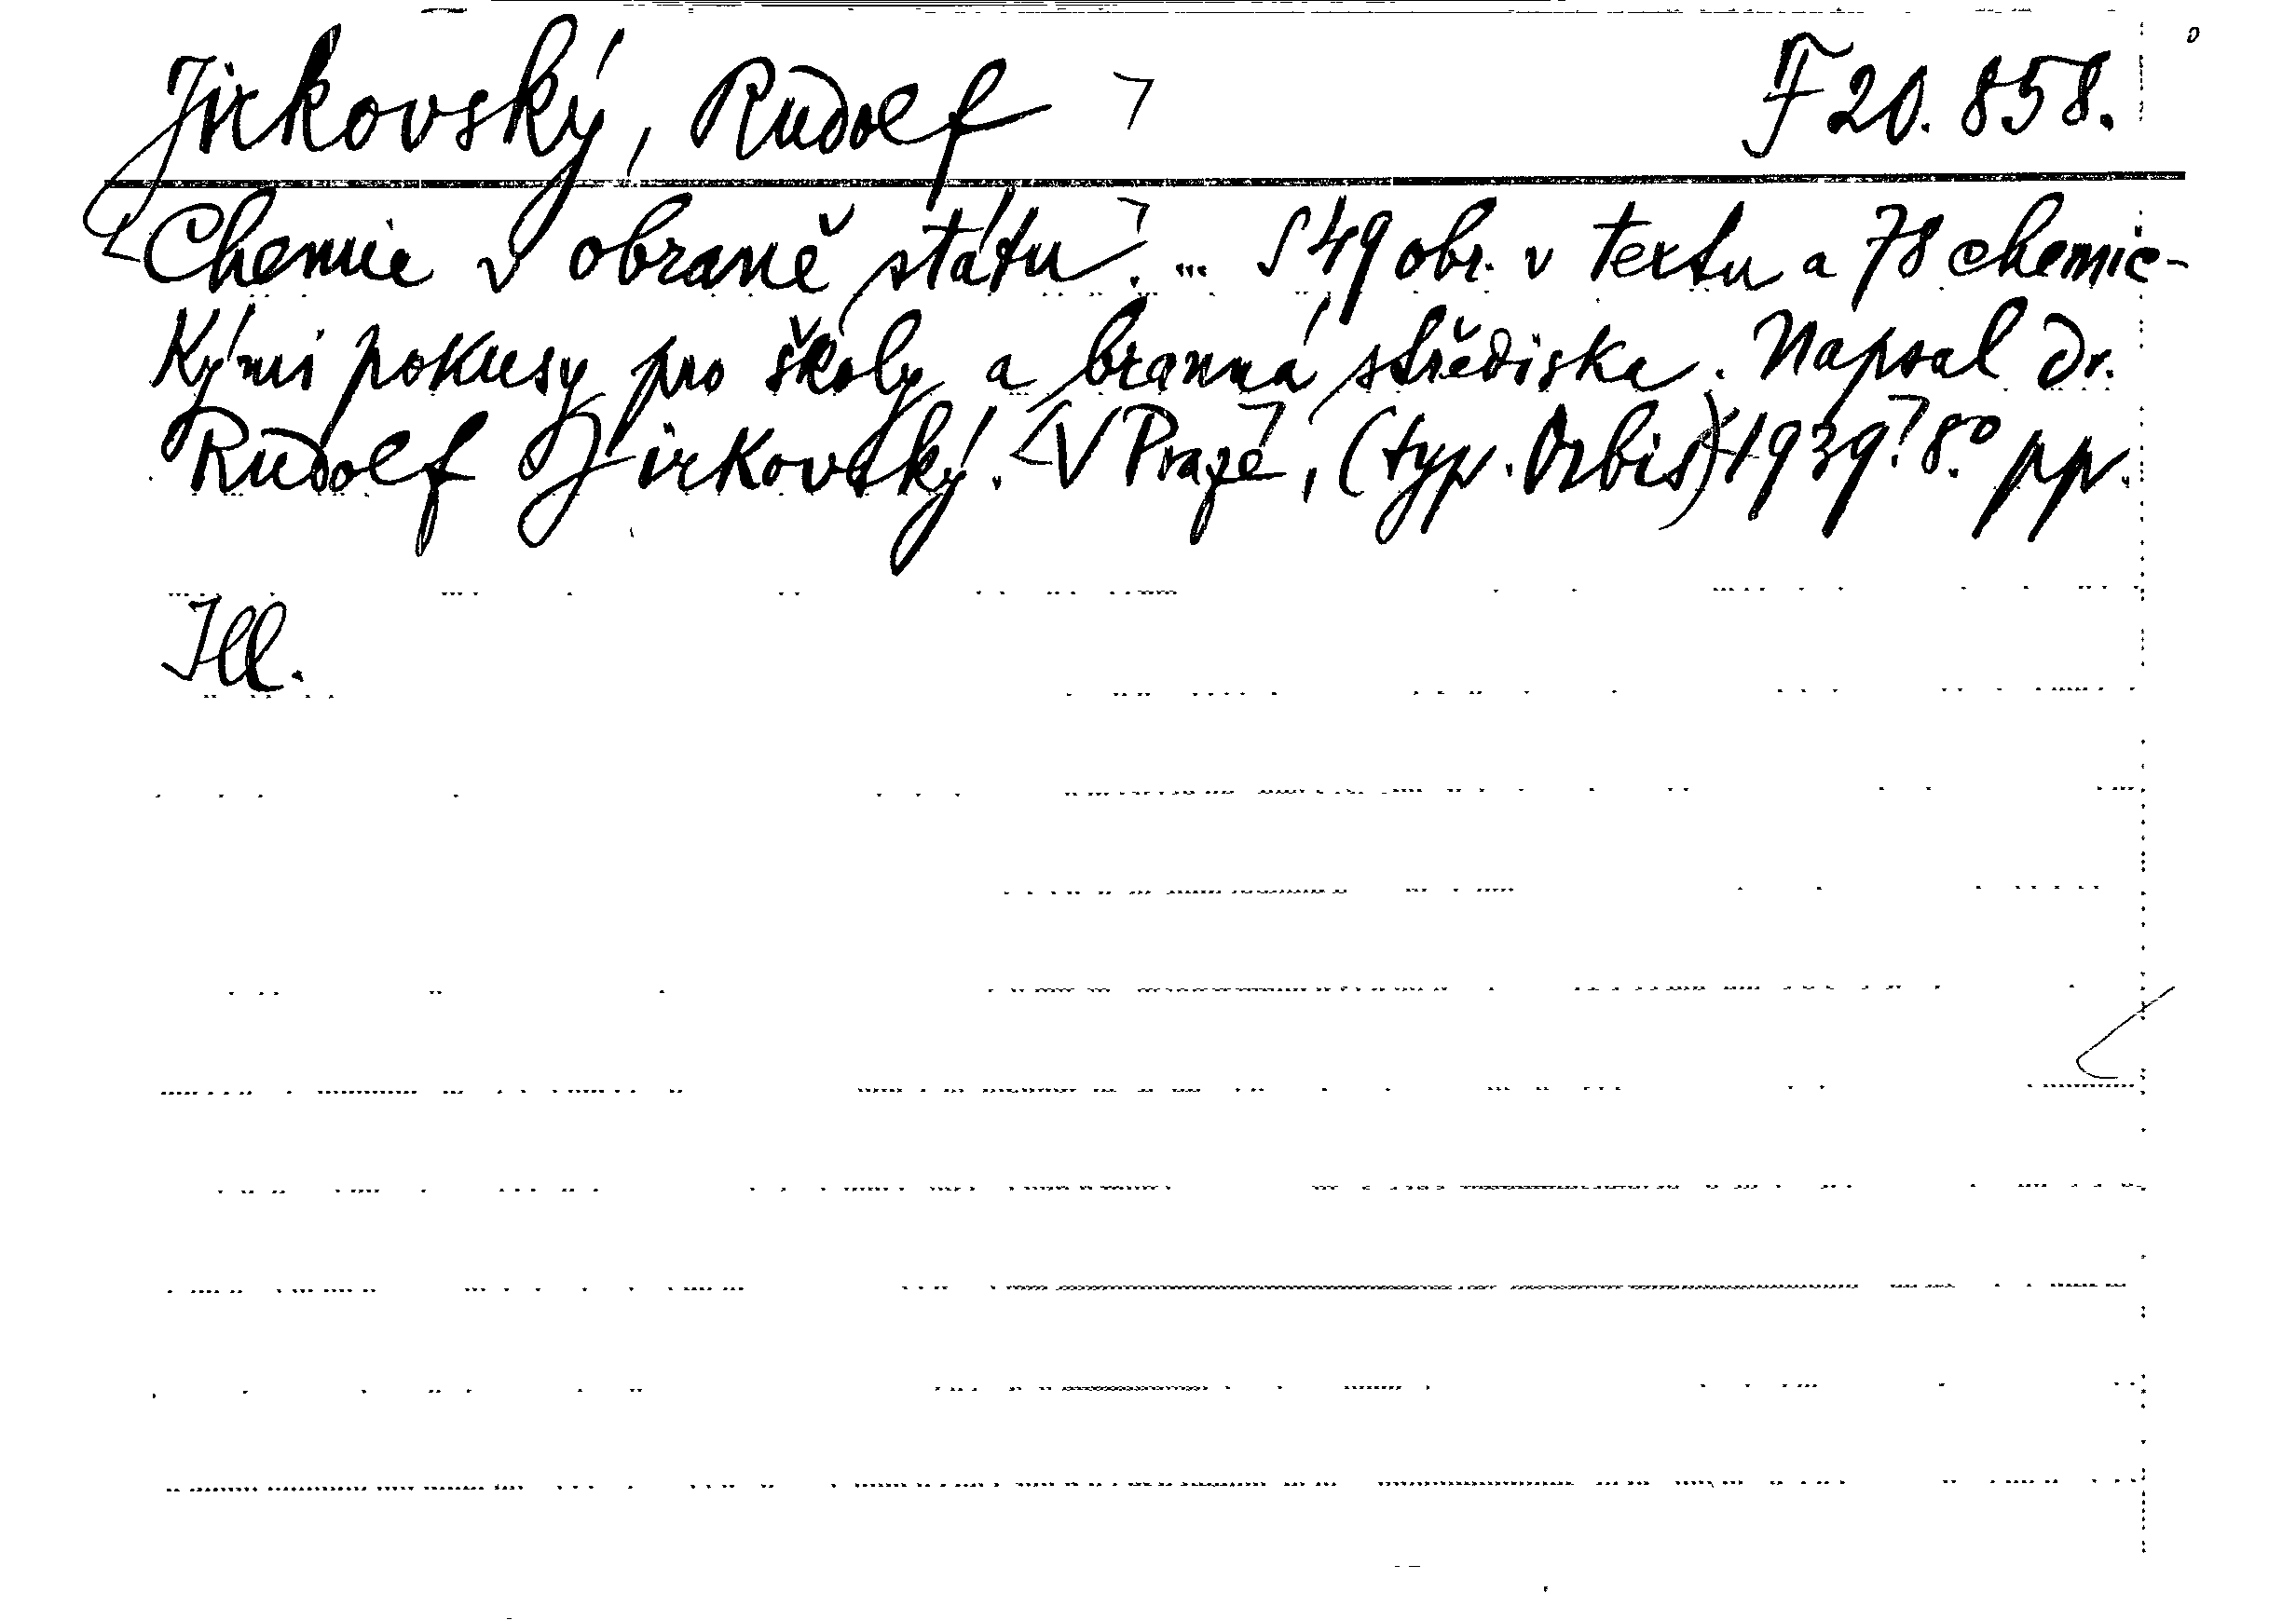 Jirkovský, Rudolf F 20.858.
Chemie v obraně státu. ... S 49 obr. v textu a 78 chemic-
kými pokusy pro školy a branná střediska. Napsal dr.
Rudolf Jirkovský. V Praze, (typ. Orbis) 1939. 8.° pp.
Ill.